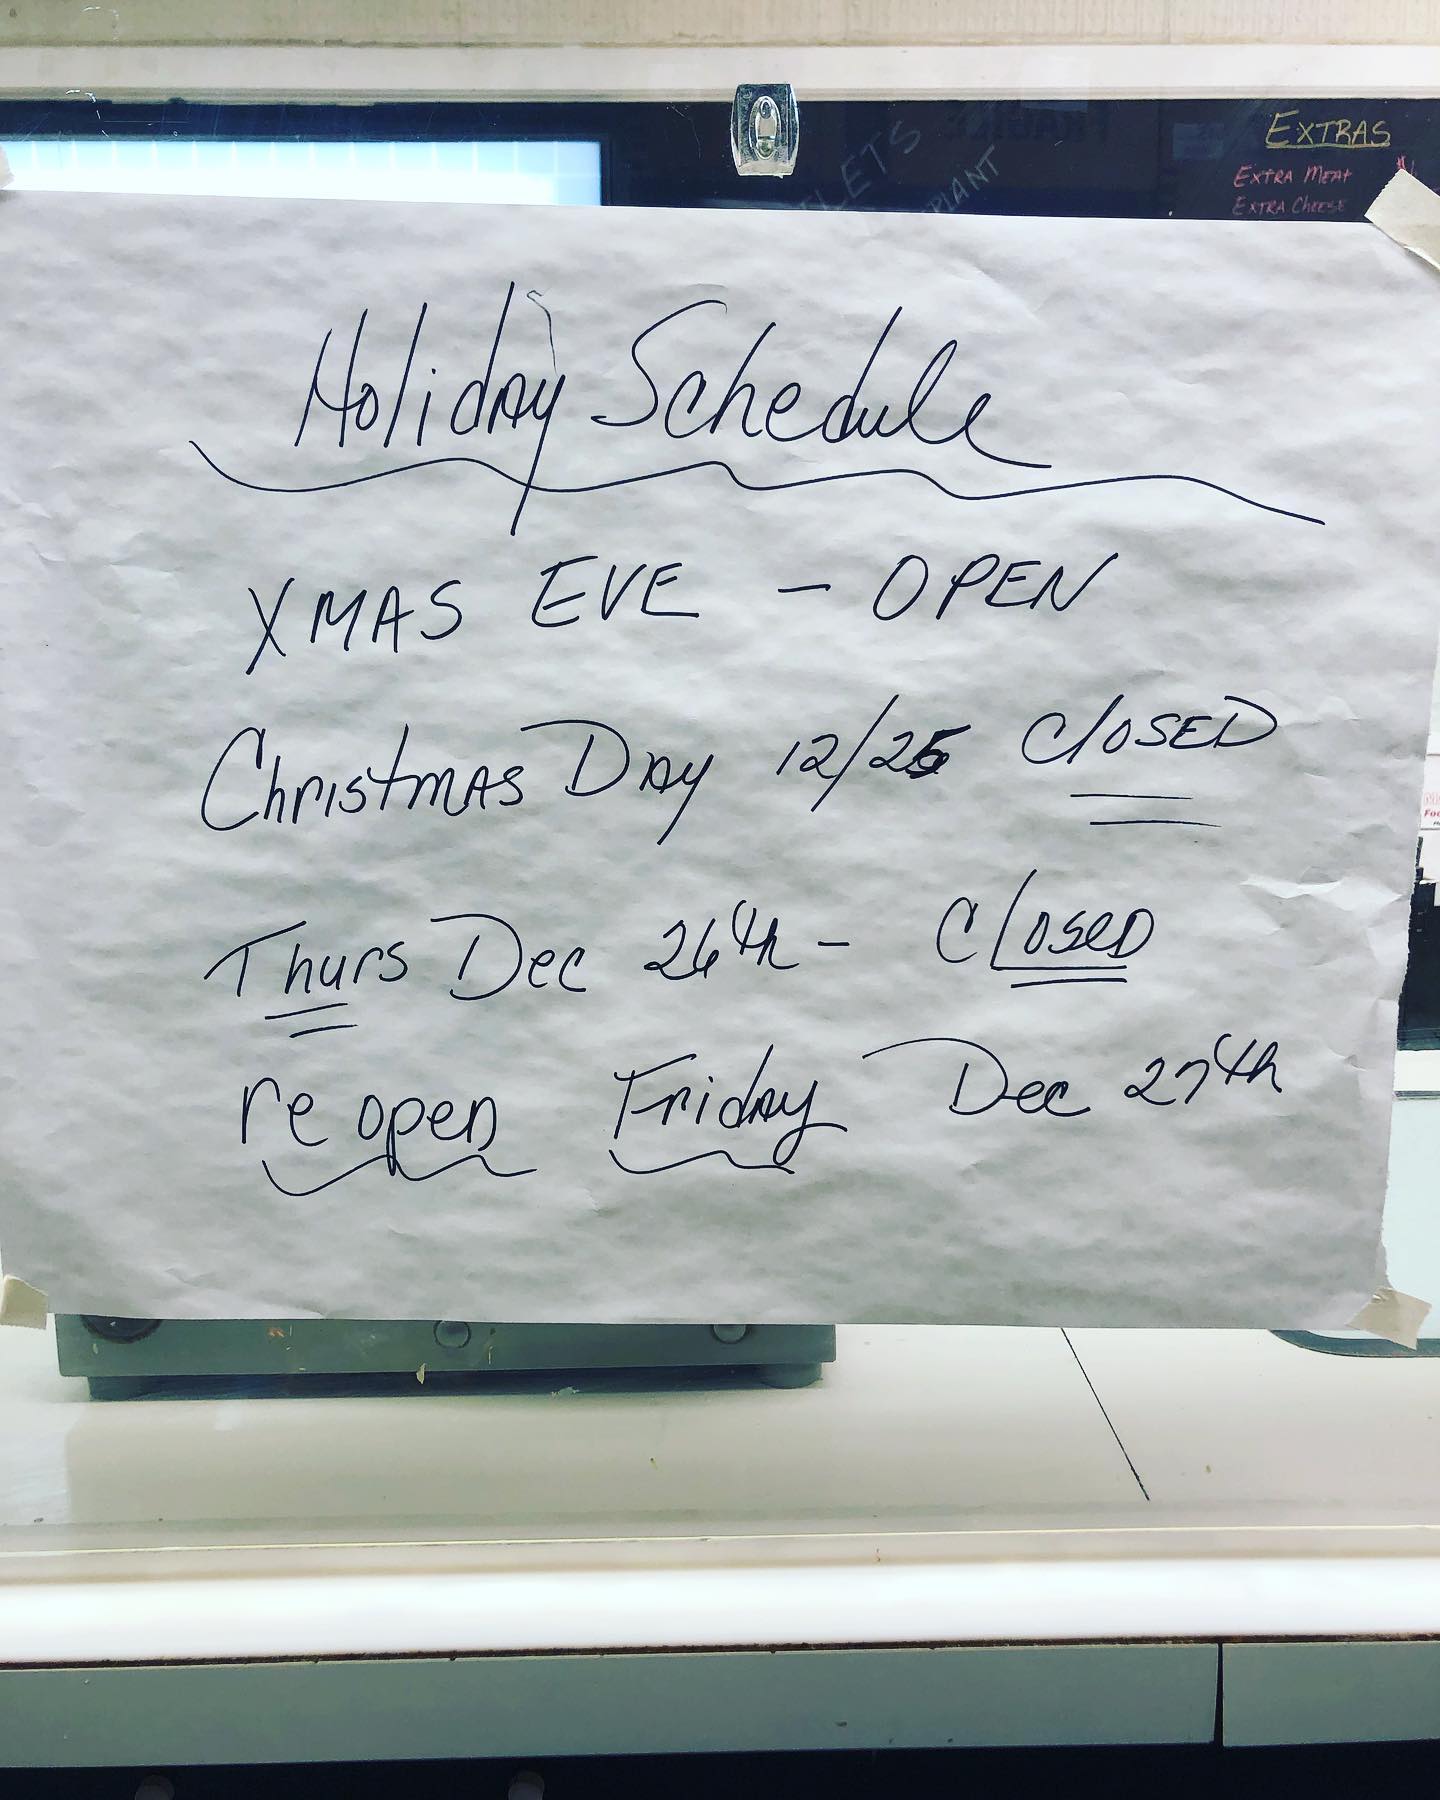 EXTRAS
EXTRA MEAT
EXTRA CHEESE
Holiday Schedule
XMAS EVE - OPEN
Christmas Day 12/25 Closed
Thurs Dec 26th - Closed
re open Friday Dec 27th